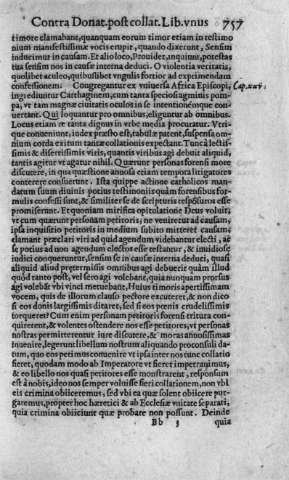 Contra Donat. post collat. Lib. vnus 757
timore clamabant, quanquam eorum timor etiam in testimo
nium manifestissimæ vocis erupit, quando dixerunt, Sensim
inducimur in causam. Et alio loco, Prouidet, inquiunt, potestas
tua sensim nos in causæ interna deduci. O violentia veritatis,
quolibet aculeo, quibuslibet vngulis fortior ad exprimendam
confessionem. Congregantur ex vniuersa Africa Episcopi, Cap. xxv.
ingrediuntur Carthaginem, cum tanta speciosi agminis pom-
pa, vt tam magnæ ciuitatis oculos in se intentionémque con-
uertant. Qui loquantur pro omnibus, eliguntur ab omnibus.
Locus etiam re tanta dignus in vrbe media procuratur. Vtri-
que conueniunt, iudex præsto est, tabulæ patent, suspensa om-
nium corda exitum tantæ collationis expectant. Tunc à lectissi-
mis & disertissimis viris, quantis viribus agi debuit aliquid,
tantis agitur vt agatur nihil. Quærunt personas forensi more
discutere, in qua quæstione annosa etiam tempora litigatores
conterere consueuerunt. Ista quippe actione catholicos man-
datum suum diuinis potius testimoniis quàm forensibus for-
mulis confessi sunt, & similiter se de scripturis responsuros esse
promiserant. Et quoniam mirifica opitulatione Deus voluit,
vt cum quærunt personam petitoris, ne veniretur ad causam,
ipsa inquisitio petitoris in medium subito mitteret causam:
clamant præclari viri ad quid agendum videbantur electi, ac
se potius ad non agendum electos esse testantur, & inuidiose
iudici conqueruntur, sensim se in causæ interna deduci, quasi
aliquid aliud prætermissis omnibus agi debuerit quàm illud
quòd tanto post, vel sero agi volebant, quia nunquam prorsus
agi volebãt vbi vinci metuebant. Huius timoris apertissimam
vocem, quis de illorum clausis pectore excuteret, & non dico
si eos donis largissimis ditares, sed si eos pœnis crudelissimis
torqueres? Cum enim personam petitoris forensi critura con-
quirerent, & volentes ostendere nos esse petitores, vt personas
nostras permitterentur iure discutere, & moras annosissimas
inuenire, legerunt libellum nostrum aliquando proconsuli da-
tum, quo eos petimus conuenire vt ipsa inter nos tunc collatio
fieret, quodam modo ab Imperatore vt fieret impetrauimus,
& eo libello nos quasi petitores esse monstrarent, responsum
est à nobis, ideo nos semper voluisse fieri collationem, non vbi
eis crimina obiiceremus, sed vbi ea quæ solent obiicere pur-
garemus, propter hoc hæretici & ab Ecclesiæ vnitate separati,
quia crimina obiiciunt quæ probare non possunt. Deinde
Bb 3 quia